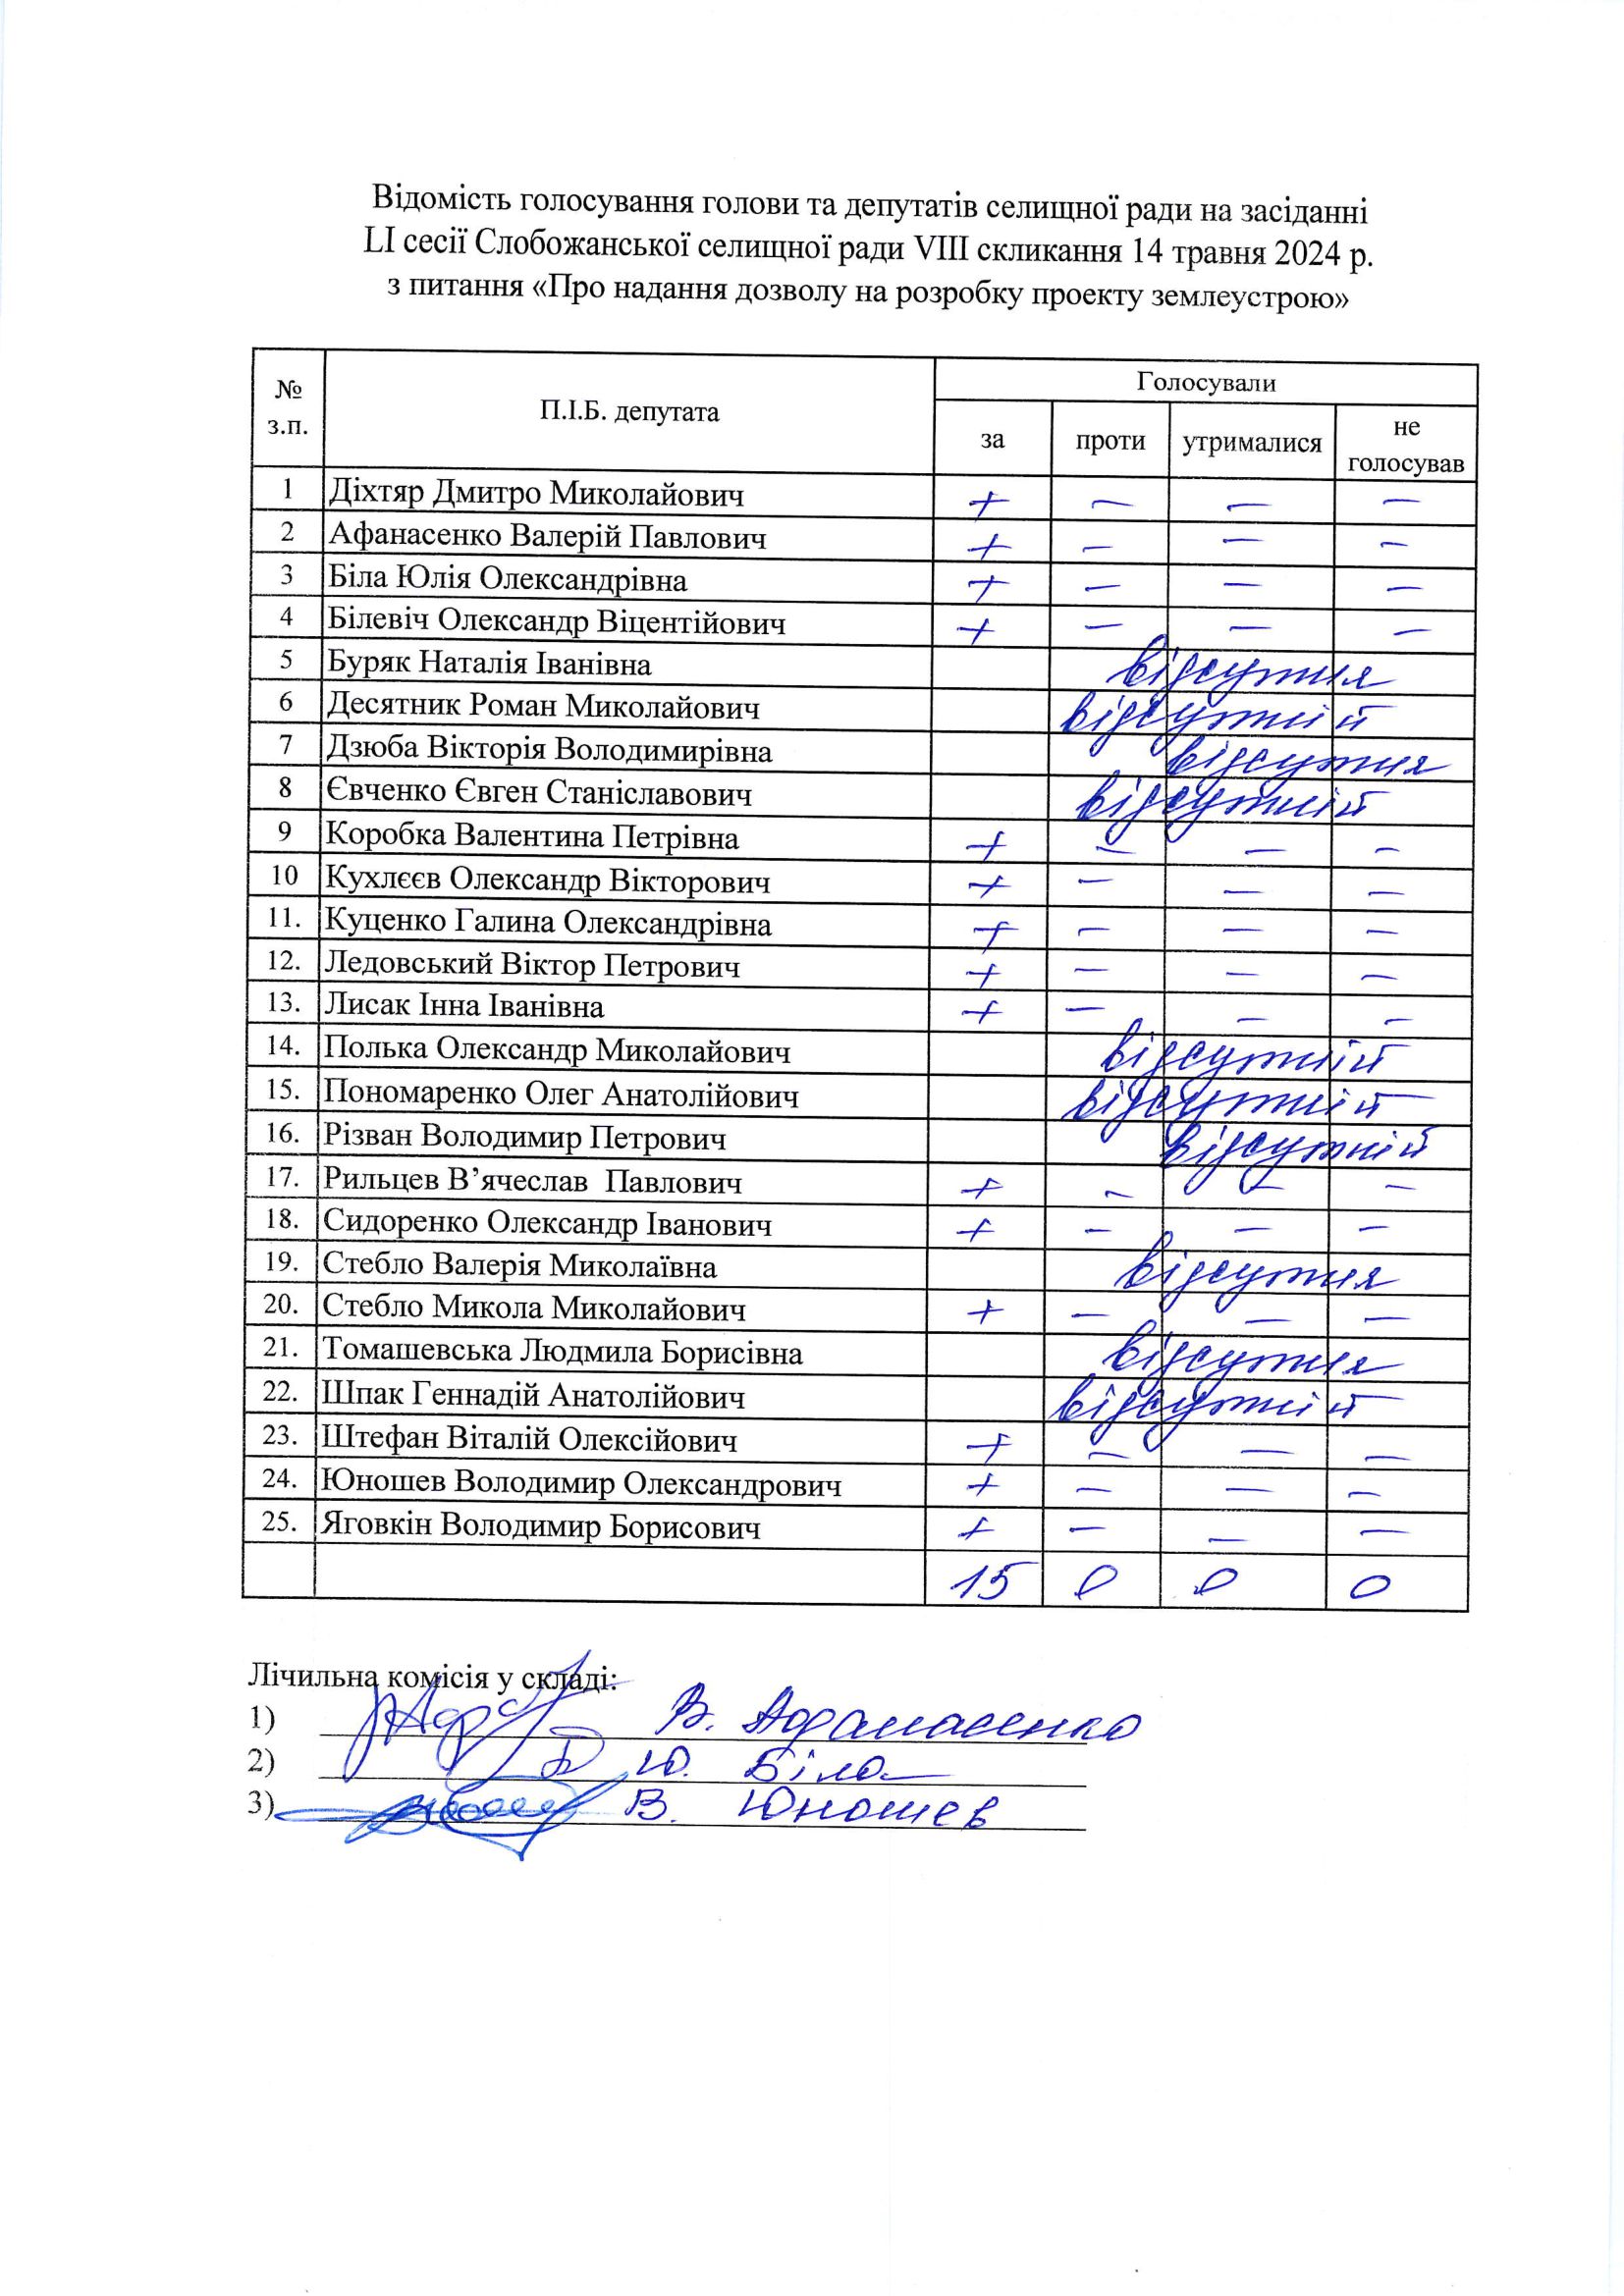 Відомість голосування голови та депутатів селищної ради на засіданні
LI сесії Слобожанської селищної ради VIII скликання 14 травня 2024 р.
з питання «Про надання дозволу на розробку проекту землеустрою»
№ з.п. П.І.Б. депутата Голосували
за проти утрималися не голосував
1 Діхтяр Дмитро Миколайович + — — —
2 Афанасенко Валерій Павлович + — — —
3 Біла Юлія Олександрівна + — — —
4 Білевіч Олександр Віцентійович + — — —
5 Буряк Наталія Іванівна відсутня
6 Десятник Роман Миколайович відсутній
7 Дзюба Вікторія Володимирівна відсутня
8 Євченко Євген Станіславович відсутній
9 Коробка Валентина Петрівна + — — —
10 Кухлєєв Олександр Вікторович + — — —
11. Куценко Галина Олександрівна + — — —
12. Ледовський Віктор Петрович + — — —
13. Лисак Інна Іванівна + — — —
14. Полька Олександр Миколайович відсутній
15. Пономаренко Олег Анатолійович відсутній
16. Різван Володимир Петрович відсутній
17. Рильцев В’ячеслав Павлович + — — —
18. Сидоренко Олександр Іванович + — — —
19. Стебло Валерія Миколаївна відсутня
20. Стебло Микола Миколайович + — — —
21. Томашевська Людмила Борисівна відсутня
22. Шпак Геннадій Анатолійович відсутній
23. Штефан Віталій Олексійович + — — —
24. Юношев Володимир Олександрович + — — —
25. Яговкін Володимир Борисович + — — —
15 0 0 0
Лічильна комісія у складі:
1) В. Афанасенко
2) Ю. Біла
3) В. Юношев